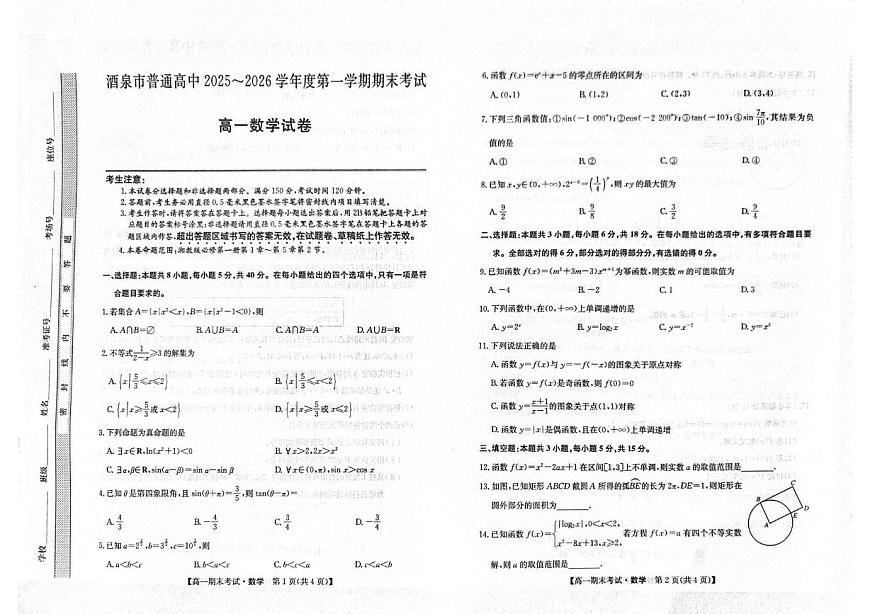 酒泉市普通高中 2025～2026 学年度第一学期期末考试
高一数学试卷
考生注意：
1. 本试卷分选择题和非选择题两部分。满分 150 分,考试时间 120 分钟。
2. 答题前,考生务必用直径 0.5 毫米黑色墨水签字笔将密封线内项目填写清楚。
3. 考生作答时,请将答案答在答题卡上。选择题每小题选出答案后,用 2B 铅笔把答题卡上对
应题目的答案标号涂黑;非选择题请用直径 0.5 毫米黑色墨水签字笔在答题卡上各题的答
题区域内作答,超出答题区域书写的答案无效,在试题卷、草稿纸上作答无效。
4. 本卷命题范围:湘教版必修第一册第 1 章～第 5 章第 2 节。
一、选择题:本题共 8 小题,每小题 5 分,共 40 分。在每小题给出的四个选项中,只有一项是符
合题目要求的。
1. 若集合 A={x|x²<x},B={x|x²-1<0},则
A. A∩B=∅ B. A∪B=A C. A∩B=A D. A∪B=R
2. 不等式 1/(2-x)≥3 的解集为
A. {x|5/3≤x≤2} B. {x|5/3≤x<2}
C. {x|x≥5/3或x<2} D. {x|x≥5/3或x<2}
3. 下列命题为真命题的是
A. ∃x∈R,ln(x²+1)<0 B. ∀x>2,2x>x²
C. ∃α,β∈R,sin(α-β)=sin α-sin β D. ∀x∈(0,π),sin x>cos x
4. 已知 θ 是第四象限角,且 sin(θ+π)=3/5,则 tan(θ-π)=
A. 4/3 B. -4/3 C. 3/4 D. -3/4
5. 已知
则
A. a<b<c B. b<a<c C. b<c<a D. c<a<b
【高一期末考试·数学 第 1 页(共 4 页)】
6. 函数 f(x)=eˣ+x-5 的零点所在的区间为
A. (0,1) B. (1,2) C. (2,3) D. (3,4)
7. 下列三角函数值:①sin(-1 000°);②cos(-2 200°);③tan(-10);④sin 7π/10,其结果为负
值的是
A. ① B. ② C. ③ D. ④
8. 已知 x,y∈(0,+∞),
则 xy 的最大值为
A. 9/2 B. 9/8 C. 3/2 D. 9/4
二、选择题:本题共 3 小题,每小题 6 分,共 18 分。在每小题给出的选项中,有多项符合题目要
求。全部选对的得 6 分,部分选对的得部分分,有选错的得 0 分。
9. 已知函数 f(x)=(m²+3m-3)xᵐ⁺¹ 为幂函数,则实数 m 的可能取值为
A. -4 B. -2 C. 1 D. 3
10. 下列函数中,在(0,+∞)上单调递增的是
A. y=2ˣ B. y=log₂x C. y=x⁻² D. y=x²
11. 下列说法正确的是
A. 函数 y=f(x)与 y=-f(-x)的图象关于原点对称
B. 若函数 y=f(x)是奇函数,则 f(0)=0
C. 函数 y=(x+1)/(x-1)的图象关于点(1,1)对称
D. 函数 y=|x|是偶函数,且在(0,+∞)上单调递增
三、填空题:本题共 3 小题,每小题 5 分,共 15 分。
12. 函数 f(x)=x²-2ax+1 在区间[1,3]上不单调,则实数 a 的取值范围是________.
13. 如图,已知矩形 ABCD 截圆 A 所得的弧BE的长为 2π,DE=1,则矩形在
圆外部分的面积为________.
C
B
D
A
E
14. 已知函数 f(x)={|log₂x|,0<x<2, x²-8x+13,x≥2, 若方程 f(x)=a 有四个不等实数
解,则 a 的取值范围是________.
【高一期末考试·数学 第 2 页(共 4 页)】
学校
班级
姓名
准考证号
考场号
座位号
密封线内不要答题